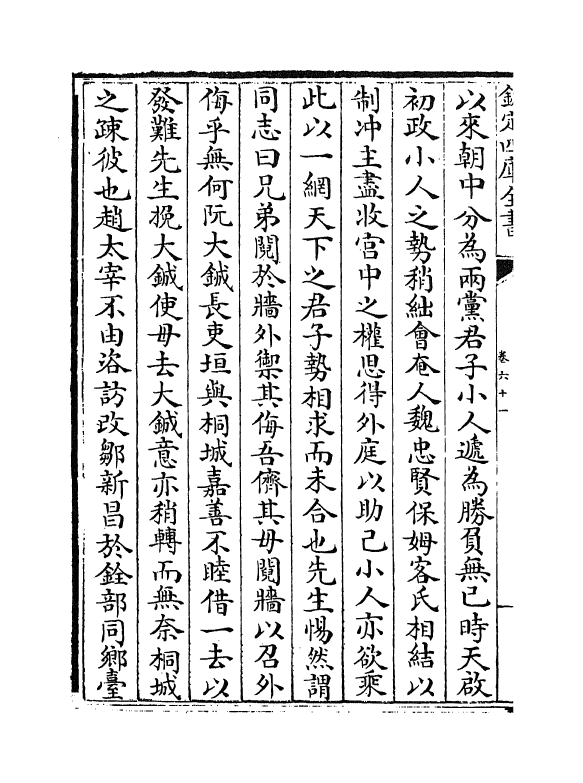 欽定四庫全書
卷六十一
以來朝中分為兩黨君子小人遞為勝負無已時天啟
初政小人之勢稍絀會奄人魏忠賢保姆客氏相結以
制冲主盡收宫中之權思得外庭以助己小人亦欲乘
此以一網天下之君子勢相求而未合也先生惕然謂
同志曰兄弟鬩於牆外禦其侮吾儕其毋鬩牆以召外
侮乎無何阮大鋮長吏垣與桐城嘉善不睦借一去以
發難先生挽大鋮使毋去大鋮意亦稍轉而無奈桐城
之疎彼也趙太宰不由咨訪改鄒新昌於銓部同鄉臺